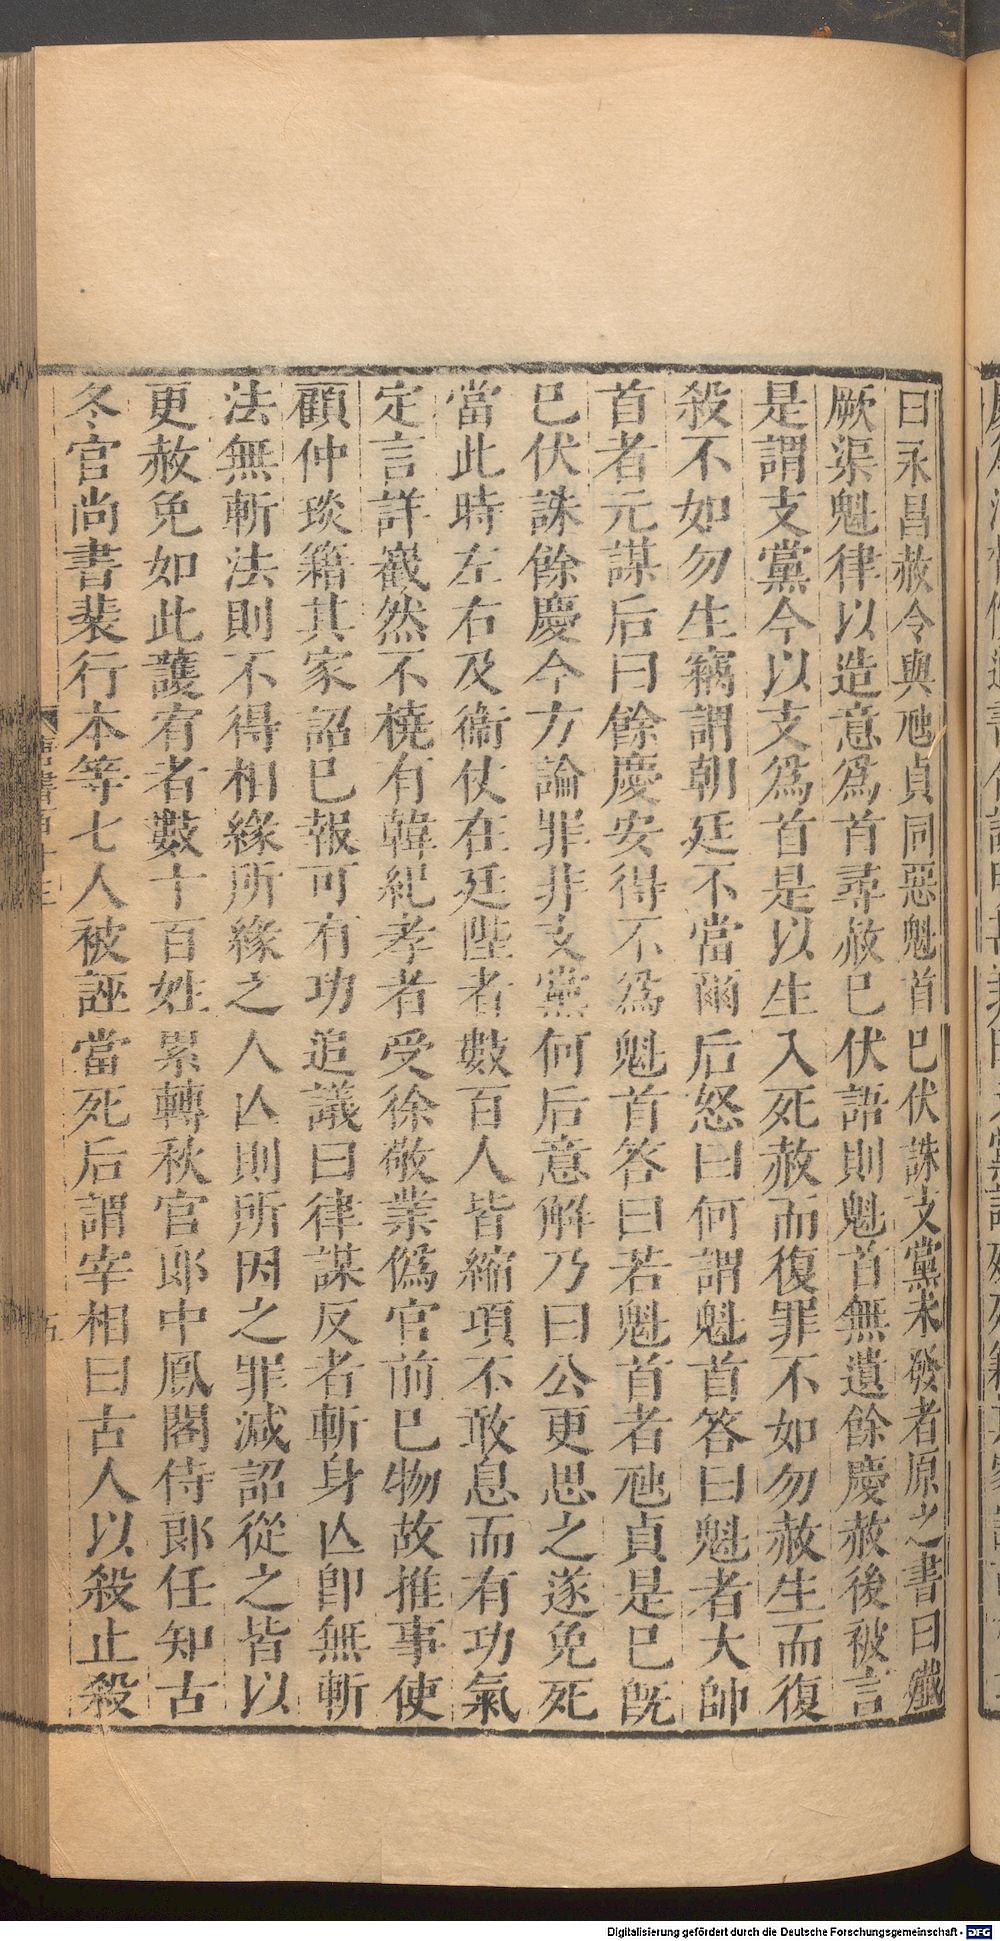 曰永昌赦令與虺貞同惡魁首已伏誅支黨未發者原之書曰殲
厥渠魁律以造意爲首尋赦已伏語則魁首無遺餘慶赦後被言
是謂支黨今以支爲首是以生入死赦而復罪不如勿赦生而復
殺不如勿生竊謂朝廷不當爾后怒曰何謂魁首答曰魁者大帥
首者元謀后曰餘慶安得不爲魁首答曰若魁首者虺貞是已旣
已伏誅餘慶今方論罪非支黨何后意解乃曰公更思之遂免死
當此時左右及衞仗在廷陛者數百人皆縮項不敢息而有功氣
定言詳嶻然不橈有韓紀孝者受徐敬業僞官前已物故推事使
顧仲琰籍其家詔已報可有功追議曰律謀反者斬身亾卽無斬
法無斬法則不得相緣所緣之人亾則所因之罪減詔從之皆以
更赦免如此護宥者數十百姓累轉秋官郎中鳳閣侍郎任知古
冬官尚書裴行本等七人被誣當死后謂宰相曰古人以殺止殺
五
Digitalisierung gefördert durch die Deutsche Forschungsgemeinschaft - DFG